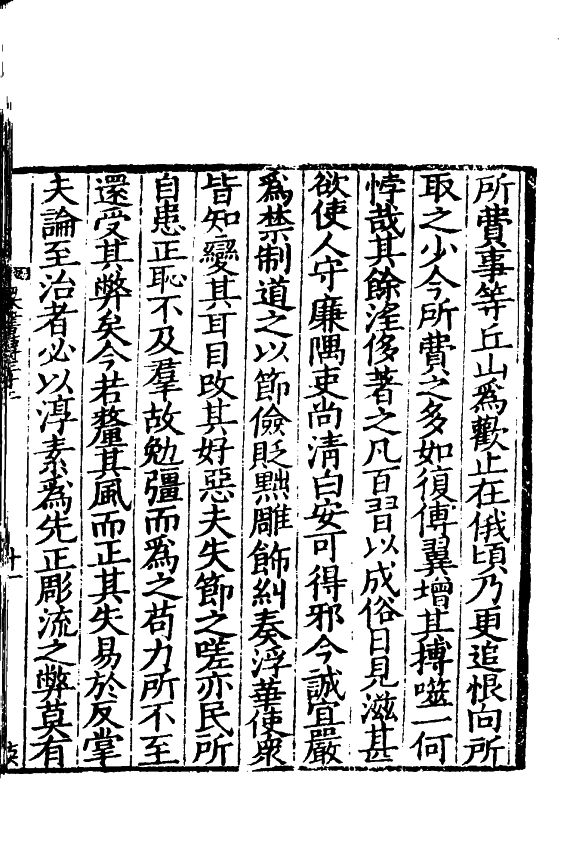 所費事等丘山爲歡止在俄頃乃更追恨向所
取之少今所費之多如復傅翼增其摶噬一何
悖哉其餘淫侈著之凡百習以成俗日見滋甚
欲使人守廉隅吏尚清白安可得邪今誠宜嚴
爲禁制道之以節儉貶黜雕飾糾奏浮華使衆
皆知變其耳目攺其好惡夫失節之嗟亦民所
自患正恥不及羣故勉彊而爲之苟力所不至
還受其弊矣今若釐其風而正其失易於反掌
夫論至治者必以淳素爲先正彫流之弊莫有